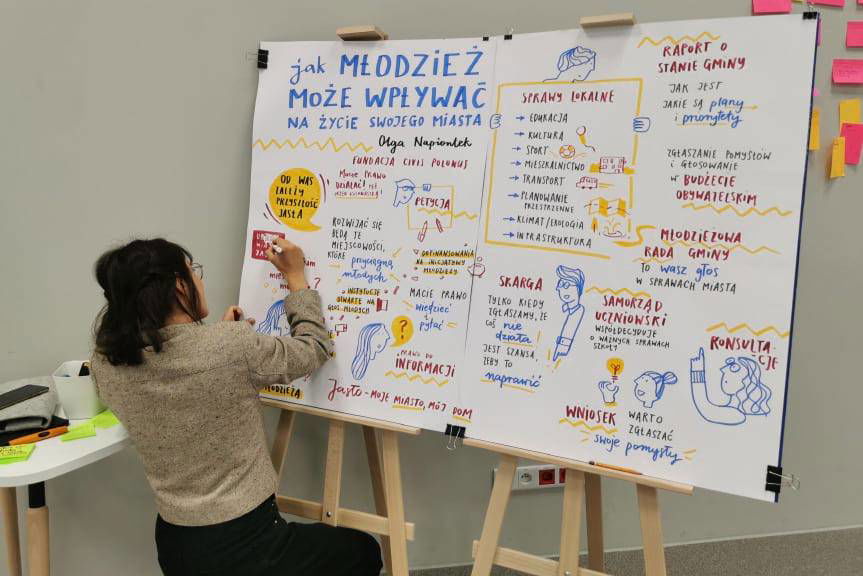 jak MŁODZIEŻ
MOŻE WPŁYWAĆ
NA ŻYCIE SWOJEGO MIASTA
Olga Napiontek
FUNDACJA CIVIS POLONUS
OD WAS
ZALEŻY
PRZYSZŁOŚĆ
JASŁA
MACIE PRAWO
DZIAŁAĆ!
PETYCJA
ROZWIJAĆ SIĘ
BĘDĄ TE
MIEJSCOWOŚCI,
KTÓRE
przyciągną
młodych
DOFINANSOWANIA
NA INICJATYWY
MŁODZIEŻY
INSTYTUCJE
OTWARTE NA
GŁOS MŁODYCH
MACIE PRAWO
wiedzieć
i pytać
?
PRAWO DO
INFORMACJI
MŁODZIEŻĄ
Jasło - moje MIASTO, MÓJ DOM
SPRAWY LOKALNE
→ EDUKACJA
→ KULTURA
→ SPORT
→ MIESZKALNICTWO
→ TRANSPORT
→ PLANOWANIE
PRZESTRZENNE
→ KLIMAT/EKOLOGIA
→ INFRASTRUKTURA
SKARGA
TYLKO KIEDY
ZGŁASZAMY, ŻE
COŚ nie
działa
JEST SZANSA,
ŻEBY TO
naprawić
RAPORT O
STANIE GMINY
JAK JEST
JAKIE SĄ plany
i priorytety
ZGŁASZANIE POMYSŁÓW
I GŁOSOWANIE
W BUDŻECIE
OBYWATELSKIM
MŁODZIEŻOWA
RADA GMINY
TO wasz głos
W SPRAWACH MIASTA
SAMORZĄD
UCZNIOWSKI
WSPÓŁDECYDUJE
O WAŻNYCH SPRAWACH
SZKOŁY
KONSULTA-
CJE
WNIOSEK
WARTO
ZGŁASZAĆ
swoje pomysły